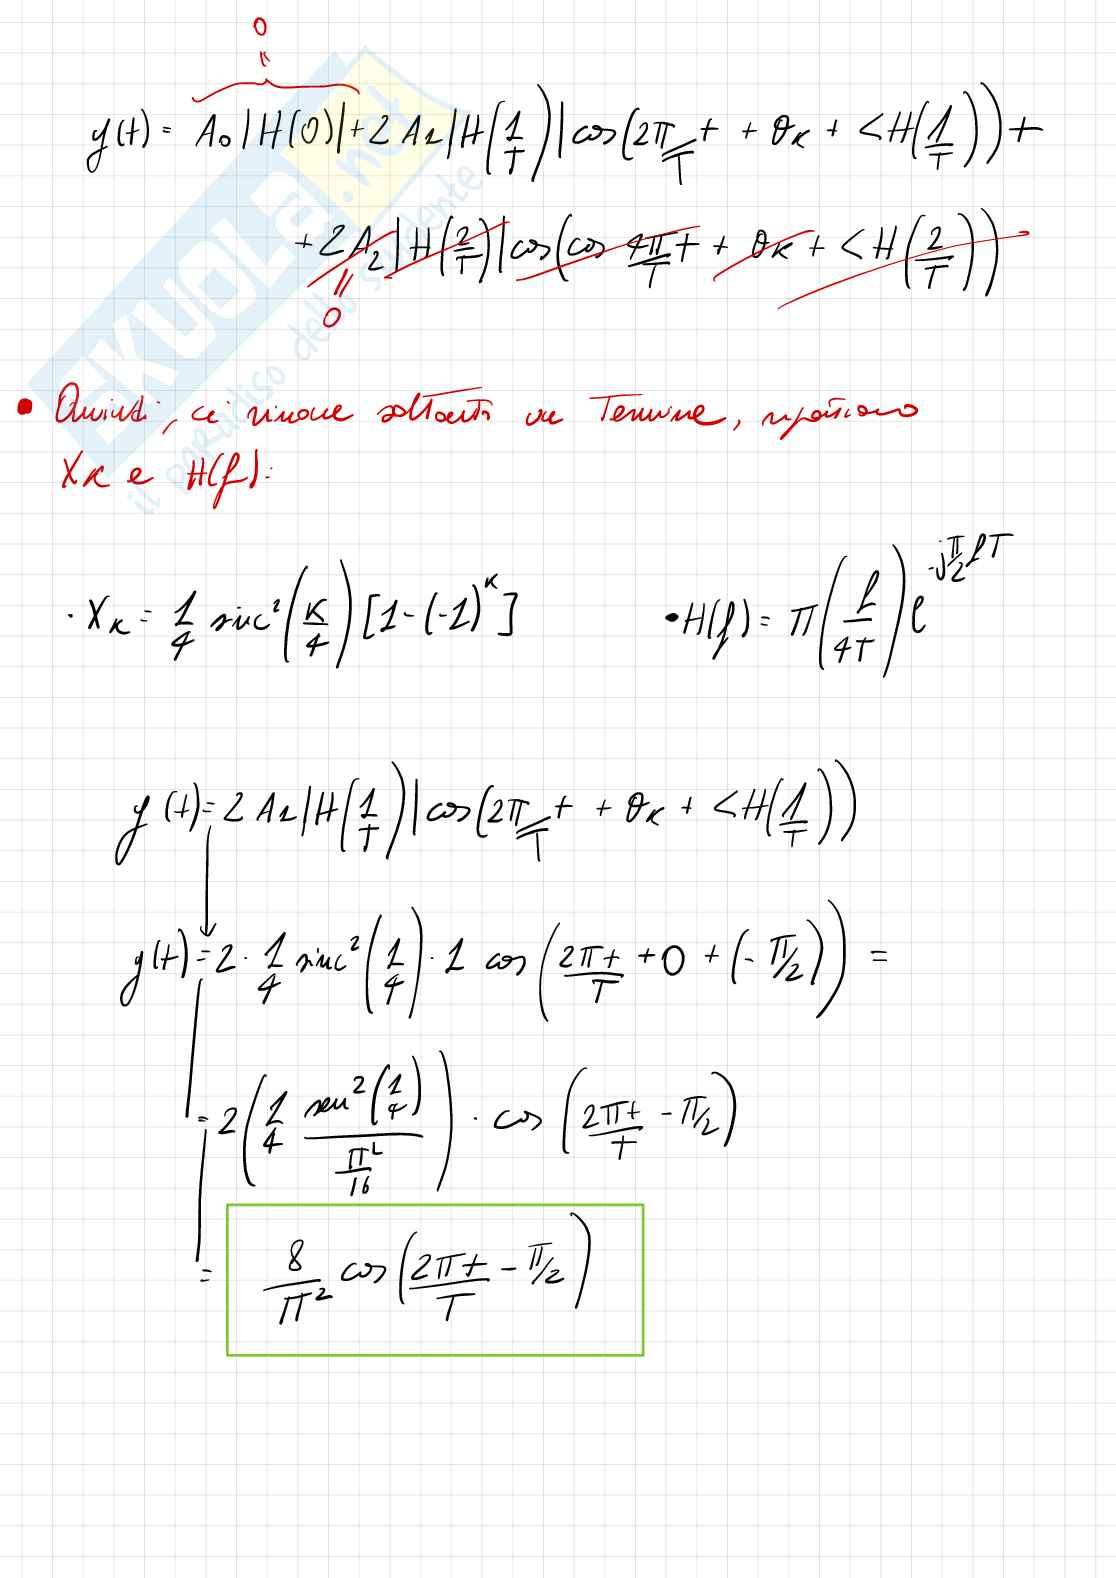 0
=
y(t) = A₀|H(0)| + 2A₁|H(1/T)|cos(2π/T t + θₖ + <H(1/T)) +
+ 2A₂|H(2/T)|cos(cos 4π/T t + θₖ + <H(2/T))
=
0
• Quindi, ci rimane soltanto un Termine, riportiamo
Xₖ e H(f):
· Xₖ = 1/4 sinc²(k/4)[1-(-1)^k] • H(f) = Π(f/4T) e^(-jπ/2 fT)
y(t) = 2A₁|H(1/T)|cos(2π/T t + θₖ + <H(1/T))
y(t) = 2 · 1/4 sinc²(1/4) · 1 cos(2πt/T + 0 + (-π/2)) =
= 2(1/4 sen²(1/4)/(π²/16)) · cos(2πt/T - π/2)
= 8/π² cos(2πt/T - π/2)
SKUOLA.net
il paradiso dello studente